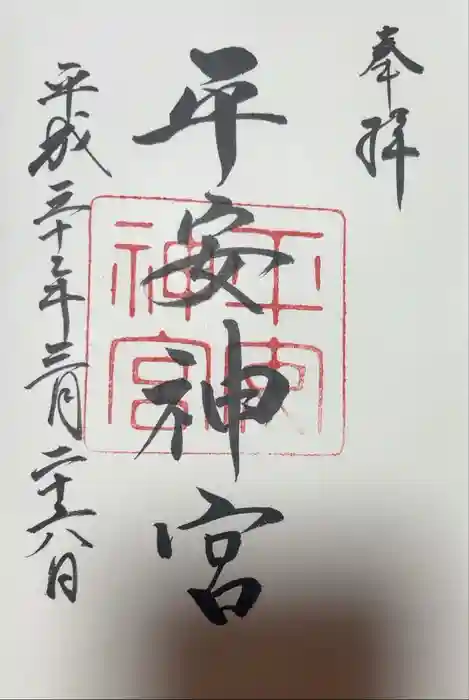 奉拝
平安神宮
平成三十一年三月二十六日
平安
神宮